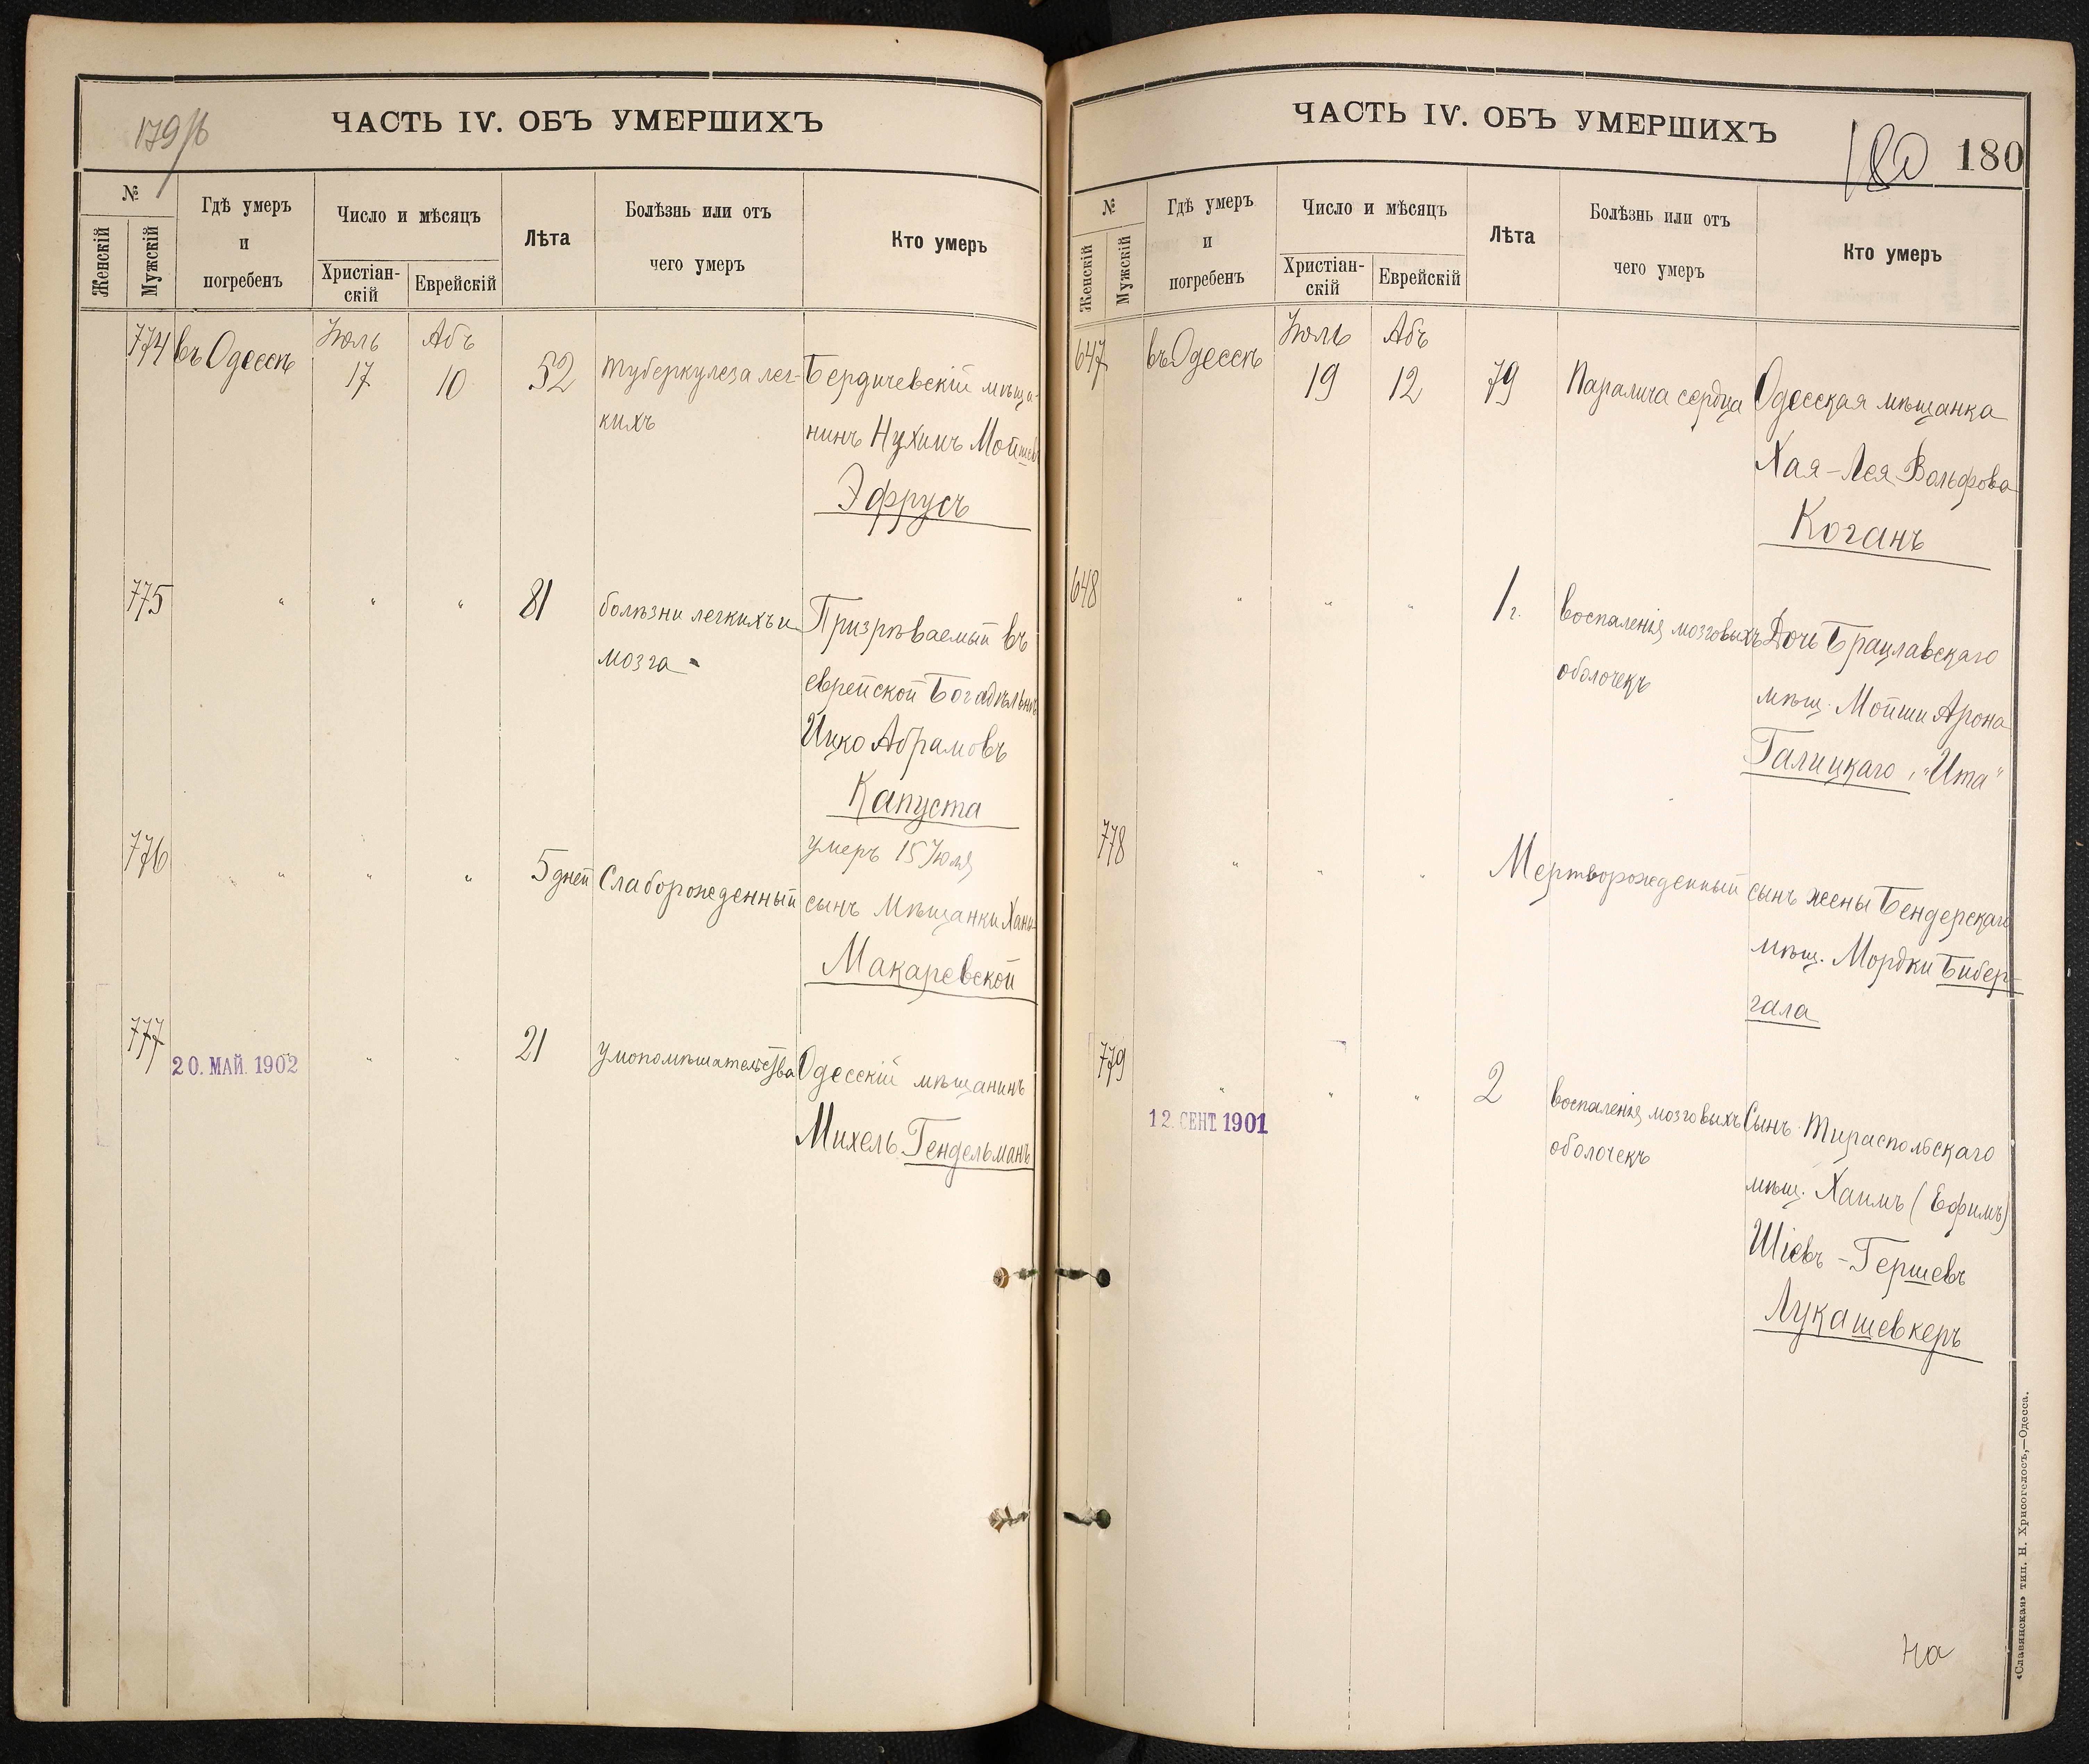 179/б
ЧАСТЬ IV. ОБЪ УМЕРШИХЪ
№
Женскій
Мужскій
Гдѣ умеръ
и
погребенъ
Число и мѣсяцъ
Христіан-
скій
Еврейскій
Лѣта
Болѣзнь или отъ
чего умеръ
Кто умеръ
774 въ Одессѣ Іюль 17 Абъ 10 52 Туберкулеза лег-
кихъ
Бердичевскій мѣща-
нинъ Нухимъ Мойшев
Эфрусъ
775 " " " 81 болѣзни легкихъ и
мозга
Призрѣваемый въ
еврейской Богадѣльнѣ
Ицко Абрамовъ
Капуста
умеръ 15 Іюля
776 " " " 5 дней Слаборожденный
сынъ Мѣщанки Ханы
Макаревской
777 " " " 21 умопомѣшательства
20. МАЙ. 1902
Одесскій мѣщанинъ
Михель Гендельманъ
ЧАСТЬ IV. ОБЪ УМЕРШИХЪ
180 180
№
Женскій
Мужскій
Гдѣ умеръ
и
погребенъ
Число и мѣсяцъ
Христіан-
скій
Еврейскій
Лѣта
Болѣзнь или отъ
чего умеръ
Кто умеръ
647 въ Одессѣ Іюль 19 Абъ 12 79 Паралича сердца
Одесская мѣщанка
Хая-Лея Вольфова
Коганъ
648 " " " 1 г. воспаленія мозговыхъ
оболочекъ
Дочь Брацлавскаго
мѣщ. Мойши Арона
Галицкаго, "Ита"
778 " " " Мертворожденный
сынъ жены Бендерскаго
мѣщ. Мордки Бибер-
гала
779 " " " 2 воспаленія мозговыхъ
оболочекъ
12. СЕНТ. 1901
Сынъ Тираспольскаго
мѣщ. Хаимъ (Ефимъ)
Шіевъ-Гершевъ
Лукашевкеръ
На
«Славянская» тип. Н. Хрисогелосъ,—Одесса.